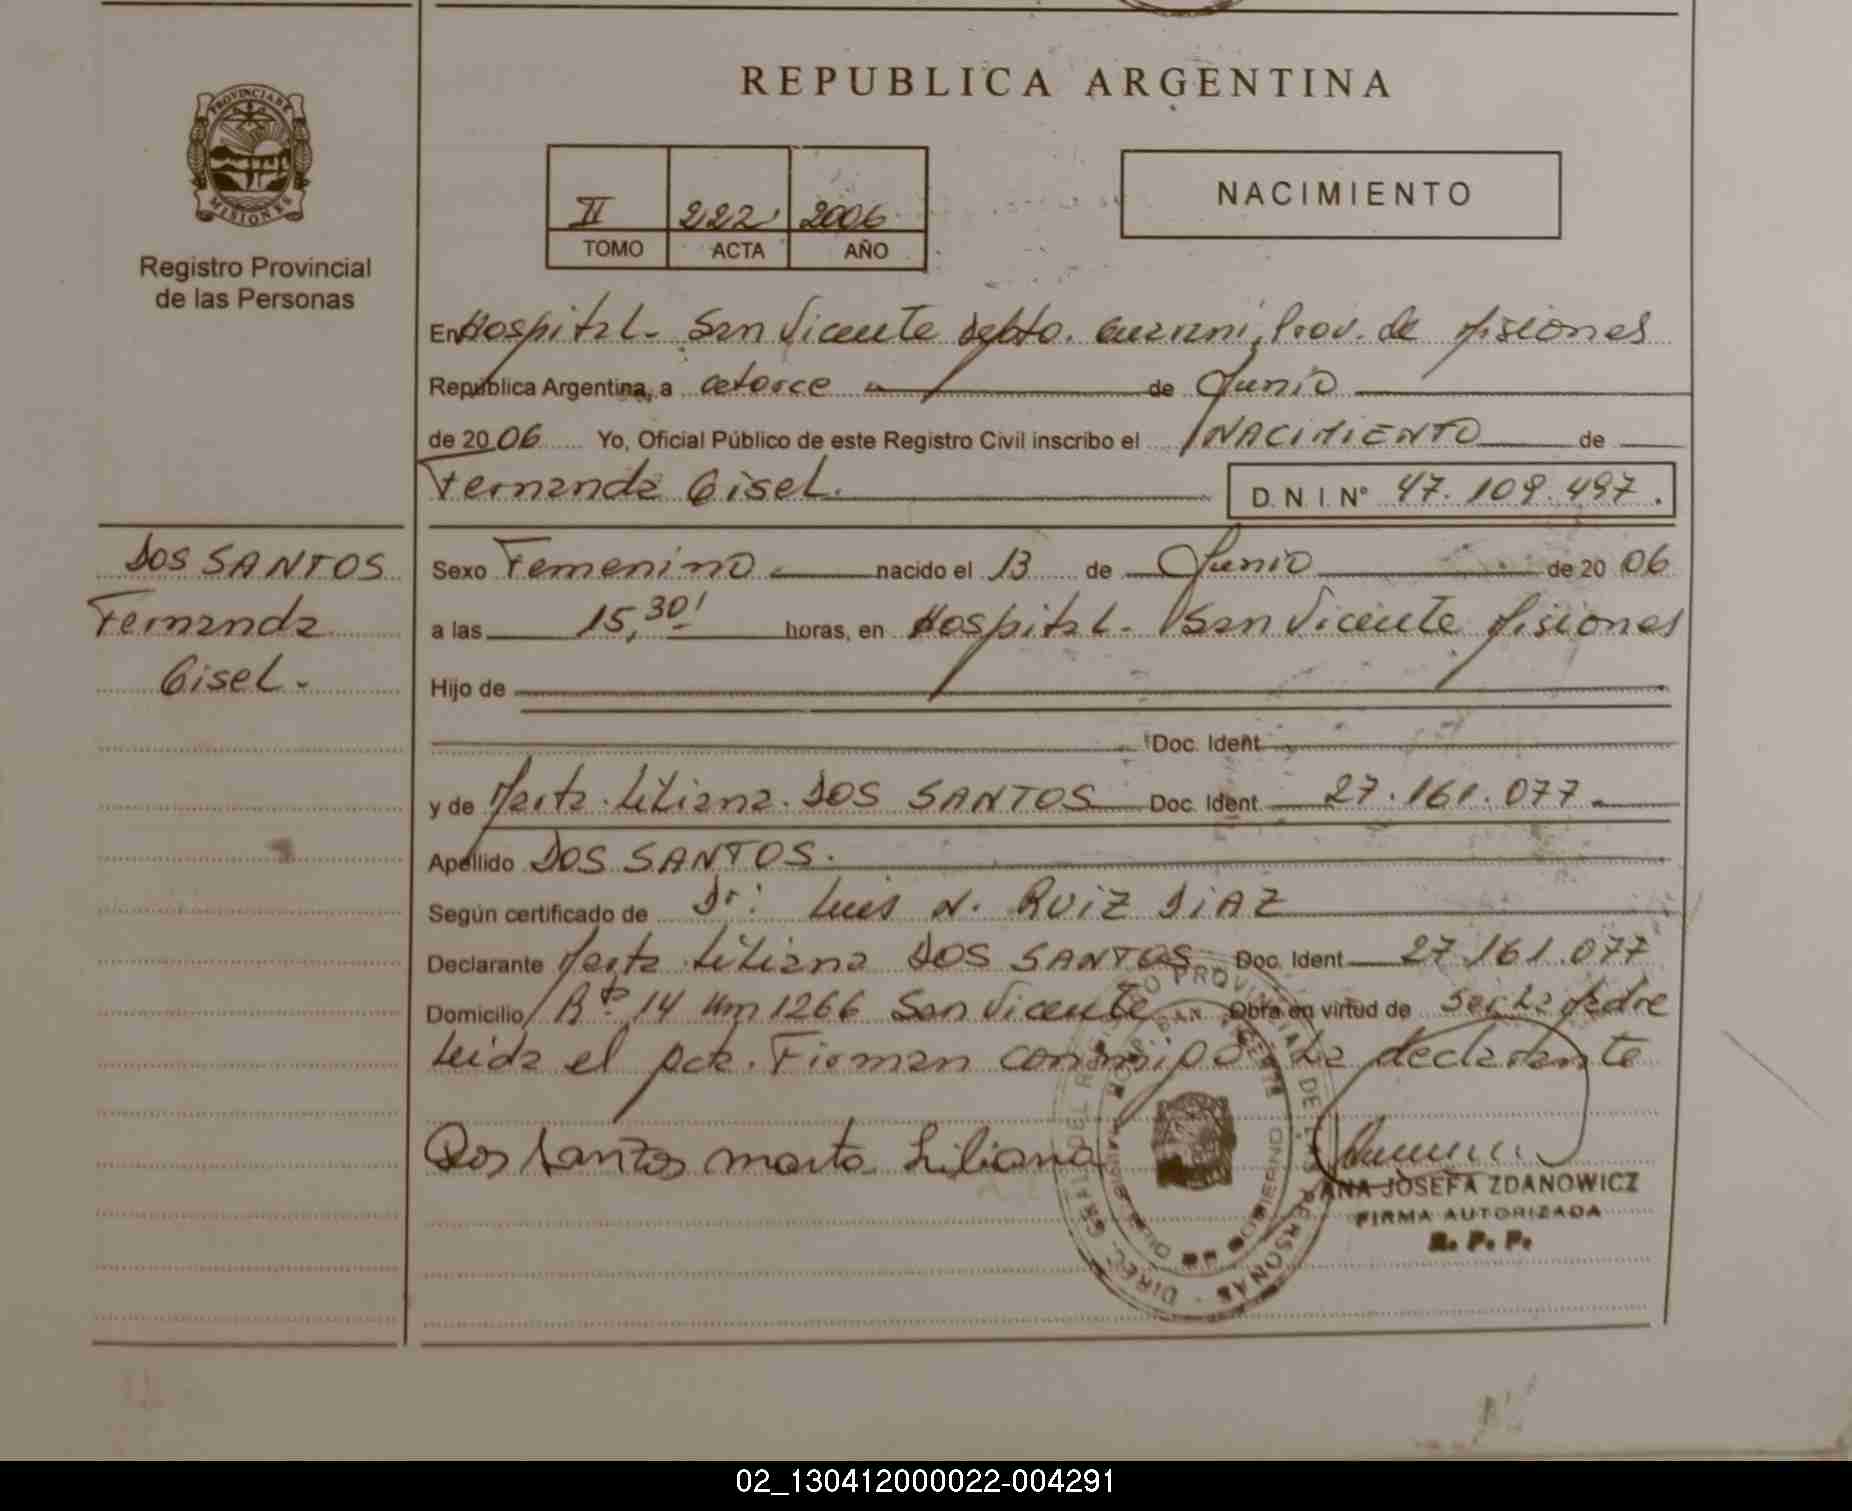 REPUBLICA ARGENTINA
PROVINCIA DE
MISIONES
Registro Provincial
de las Personas
II 222 2006
TOMO ACTA AÑO
NACIMIENTO
En Hospital - San Vicente Depto. Guarani, Prov. de Misiones
República Argentina, a catorce de Junio
de 2006 Yo, Oficial Público de este Registro Civil inscribo el NACIMIENTO de
Fernanda Gisel. D. N. I. Nº 47.109.497.
DOS SANTOS
Fernanda
Gisel.
Sexo Femenino nacido el 13 de Junio de 2006
a las 15,30' horas, en Hospital - San Vicente Misiones
Hijo de
Doc. Ident
y de Marta Liliana DOS SANTOS Doc. Ident 27.161.077.
Apellido DOS SANTOS.
Según certificado de Dr: Luis N. RUIZ DIAZ
Declarante Marta Liliana DOS SANTOS Doc. Ident 27.161.077
Domicilio Rta 14 Km 1266 San Vicente Obra en virtud de ser la Madre
Leida el acta. Firman conmigo La declarante
Dos Santos marta Liliana
ANA JOSEFA ZDANOWICZ
FIRMA AUTORIZADA
R. P. P.
02_130412000022-004291